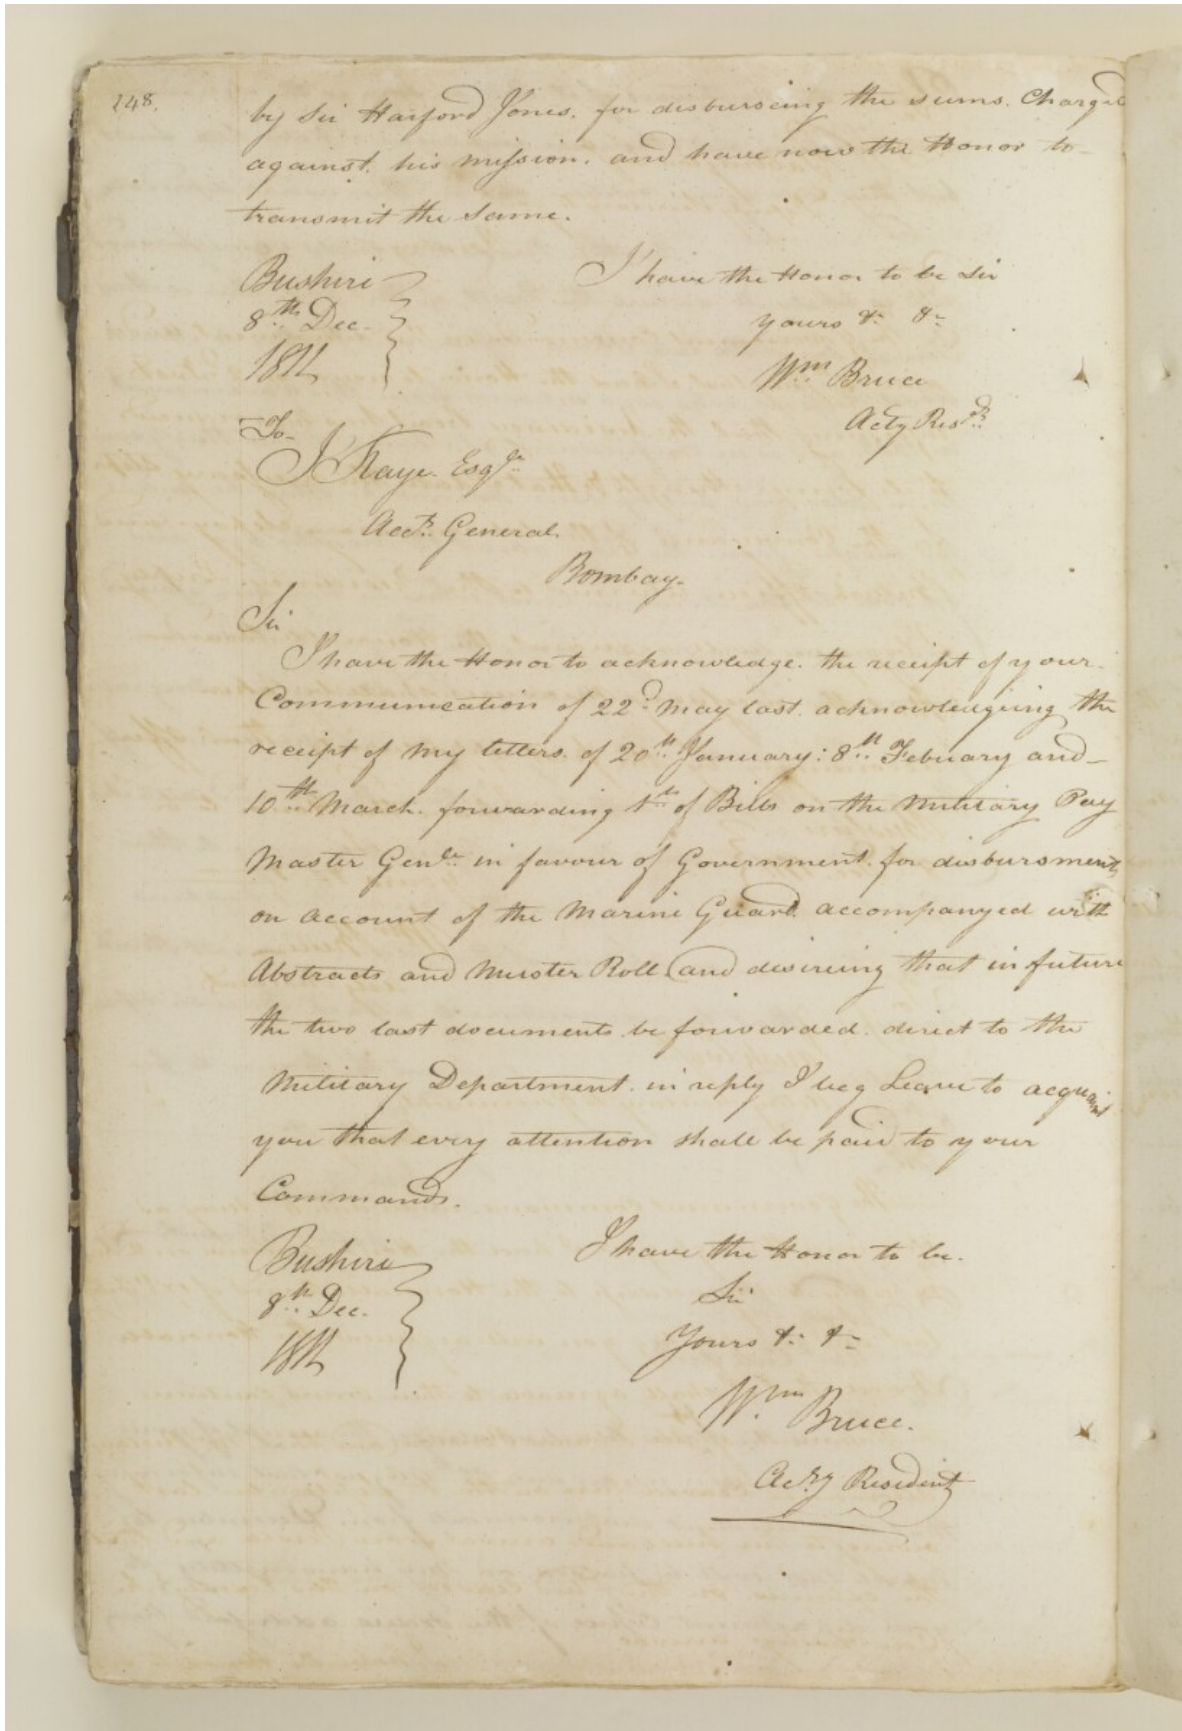 148.
by Sir Harford Jones. for disburseing the sums. Charged
against. his mission. and have now the Honor to
transmit the same.
Bushire
I have the Honor to be Sir
8th Dec.
yours &c &c
1811
Wm Bruce
Actg Resdt
To
J Kaye. Esqre
Acct. General.
Bombay.
Sir
I have the Honor to acknowledge. the receipt of your.
Communication of 22d May last. acknowledgeing the
receipt of my letters. of 20th January: 8th Febuary and
10th March. forwarding 1st of Bills on the Military Pay
Master Genle in favour of Government. for disbursments
on account of the Marine Guard accompanyed with
Abstracts and Muster Roll (and desireing that in future
the two last documents. be forwarded. direct to the
Military Department. in reply I beg Leave to acquaint
you that every attention shall be paid to your
Commands.
Bushire
I have the Honor to be.
8th Dec.
Sir
1811
Yours &c &c
Wm Bruce.
Actg Resident